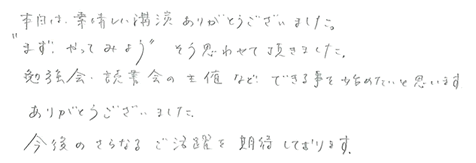 本日は、素晴しい講演ありがとうございました。
"まず、やってみよう" そう思わせて頂きました。
勉強会・読書会の主催など、できる事を始めたいと思います
ありがとうございました。
今後のさらなるご活躍を期待しております。